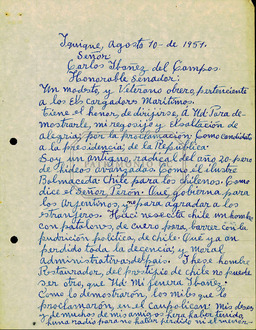 Iquique, Agosto 10- de 1951.
Señor:
Carlos Ibáñez del Campos
Honorable Senador:
Un modesto, y Veterano obrero, perteneciente
a los Ets cargadores Marítimos.
tiene el honor, de dirijirse, a Ud Para de-
mostrarle, mi regosijo y exsaltación de
alegria; por la proclamación; Como candidato
a la presidencia; de la República
Soy un antiguo, radical del año 20- pero
de hideas avanzadas Como el ilustre
Belmaceda Chile para los chilenos: Como
dice el Señor Perón: Qué gobierna para
los Argentinos, y no para agradar a los
estranjeros. Haci nesecita chile un hombre
con patalones, de cuero para, barrer con la
pudrición política, de chile: Qué ya an
perdido toda la decencia; y, moral
Administrativa del pais. I ese hombre
Restaurador, del prestijio de chile no puede
ser otro, que Ud Mi Jeneral Ibáñez:
Como lo demostrarón, los miles que lo
proclamarón, en el Caupolican: Mis deseos
y de muchos de mis amigos fera haber tenido
una radio para no haber perdido ni el menor